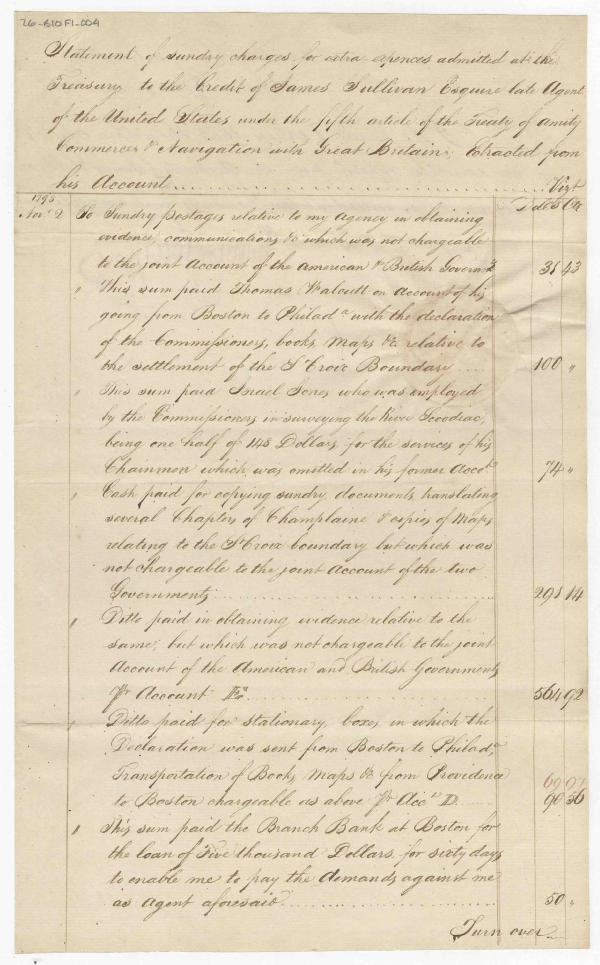 26-B10F1-004
Statement of sundry charges for extra expences admitted at the
Treasury to the Credit of James Sullivan Esquire late Agent
of the United States under the fifth article of the Treaty of Amity
Commerce & Navigation with Great Britain, Extracted from
his Account . . . . . . . . . . . . . . . Vizt
Dolls Cts
Novr 2 To Sundry postages relative to my Agency in obtaining
evidence, communications &c which was not chargeable
to the joint Account of the American & British Governmts 31 43
" This sum paid Thomas Walcutt on Account of his
going from Boston to Philada with the declaration
of the Commissioners, books, Maps &c relative to
the settlement of the St Croix Boundary . . . . 100 "
" This sum paid Israel Jones who was employed
by the Commissioners in surveying the River Scoodiac,
being one half of 148 Dollars, for the services of his
Chainmen which was omitted in his former Accot 74 "
" Cash paid for copying sundry documents, translating
several Chapters of Champlaine & copies of Maps
relating to the St Croix boundary but which was
not chargeable to the joint Account of the two
Governments . . . . . . . . . . . . . . . 291 14
" Ditto paid in obtaining evidence relative to the
same, but which was not chargeable to the joint
Account of the American and British Governments
Pr Account . . . . . . . . . . . . . . . 564 92
" Ditto paid for stationary, boxes, in which the
Declaration was sent from Boston to Philada,
Transportation of Books, Maps &c from Providence
to Boston chargeable as above Pr Acct D . . . . 90 36
" This sum paid the Branch Bank at Boston for
the loan of Five thousand Dollars, for sixty days
to enable me to pay the demands against me
as Agent aforesaid . . . . . . . . . . . . . . . 50 "
Turn over